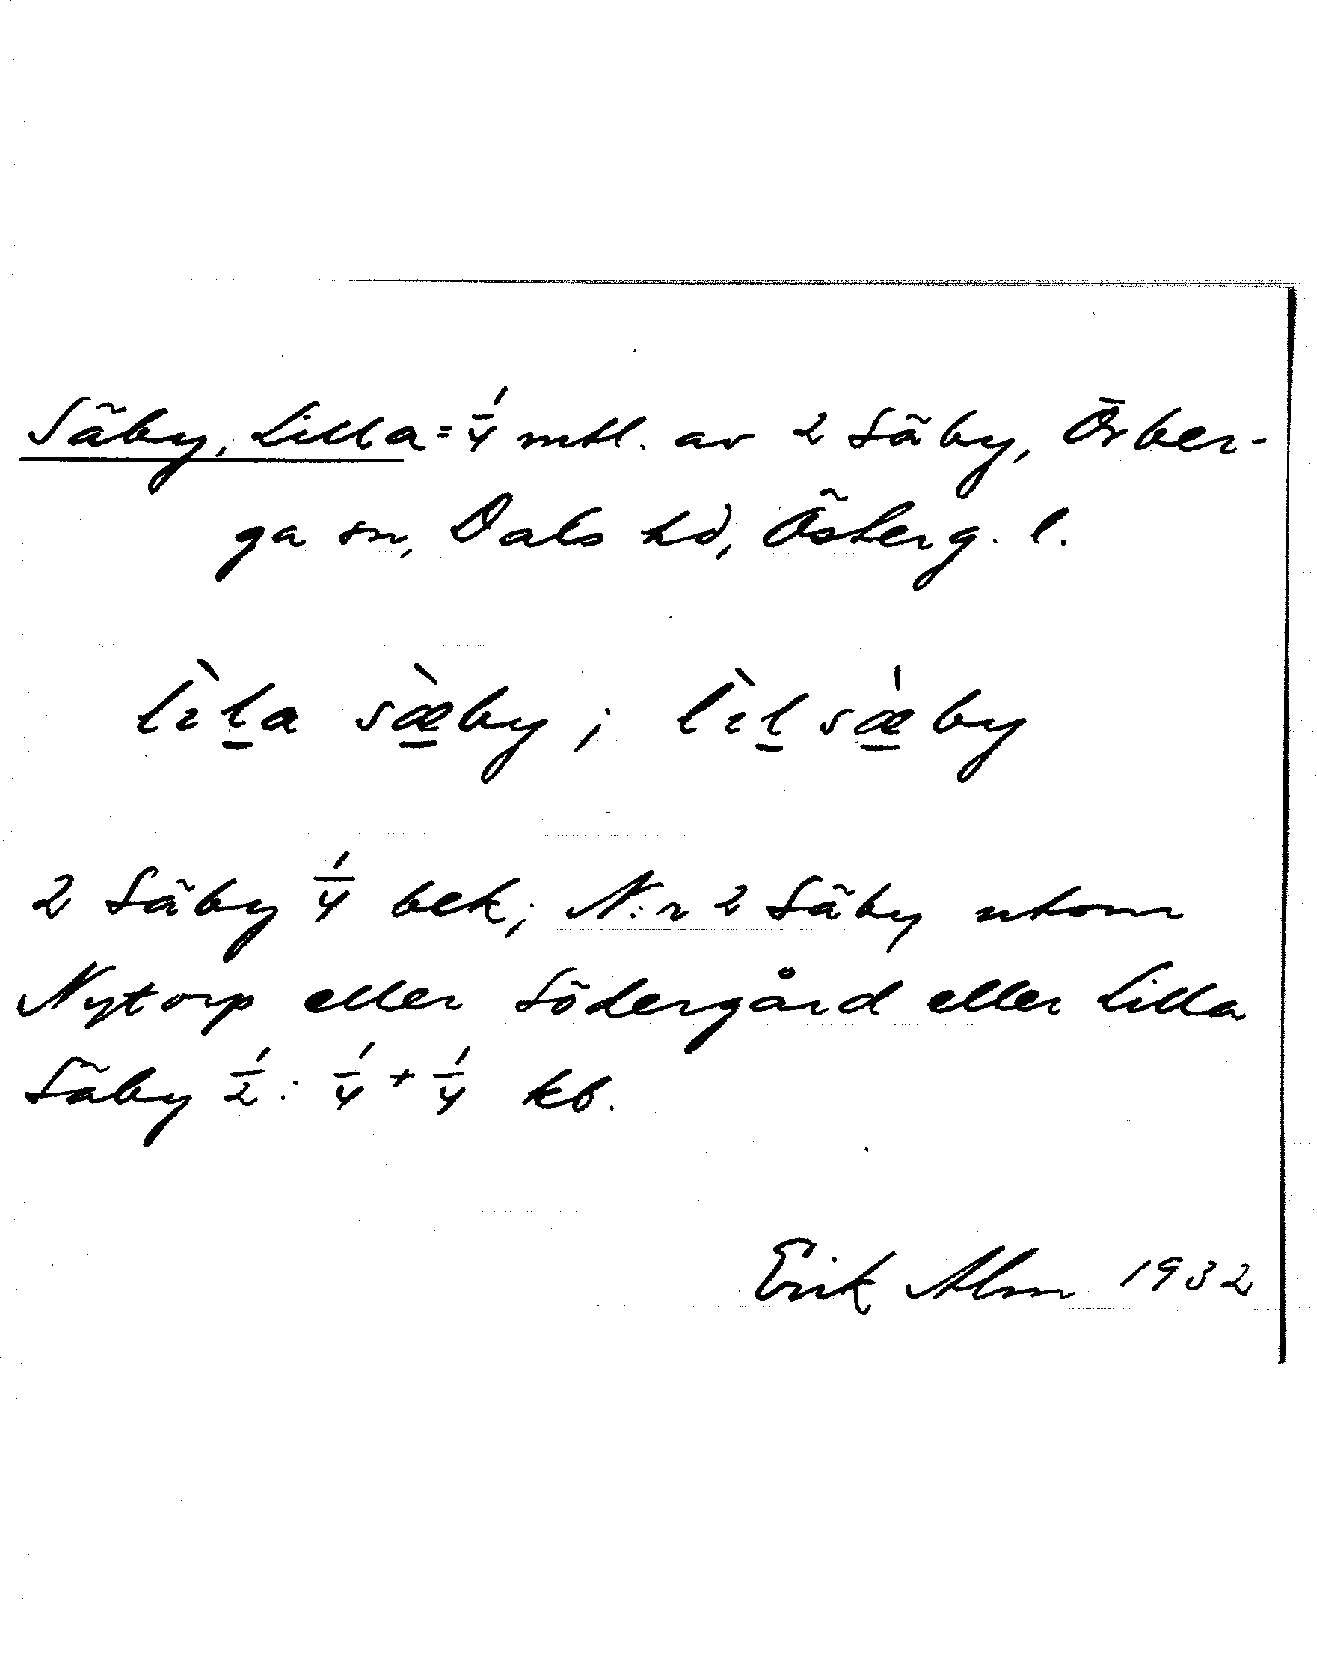 Säby, Lilla = 1/4 mtl. av 2 Säby, Örber-
ga sn, Dals hd, Österg. l.
lìla sæ̀by; lìlsæ̀by
2 Säby 1/4 bek; N:r 2 Säby utom
Nytorp eller Södergård eller Lilla
Säby 1/2: 1/4 + 1/4 kb.
Erik Alm 1932